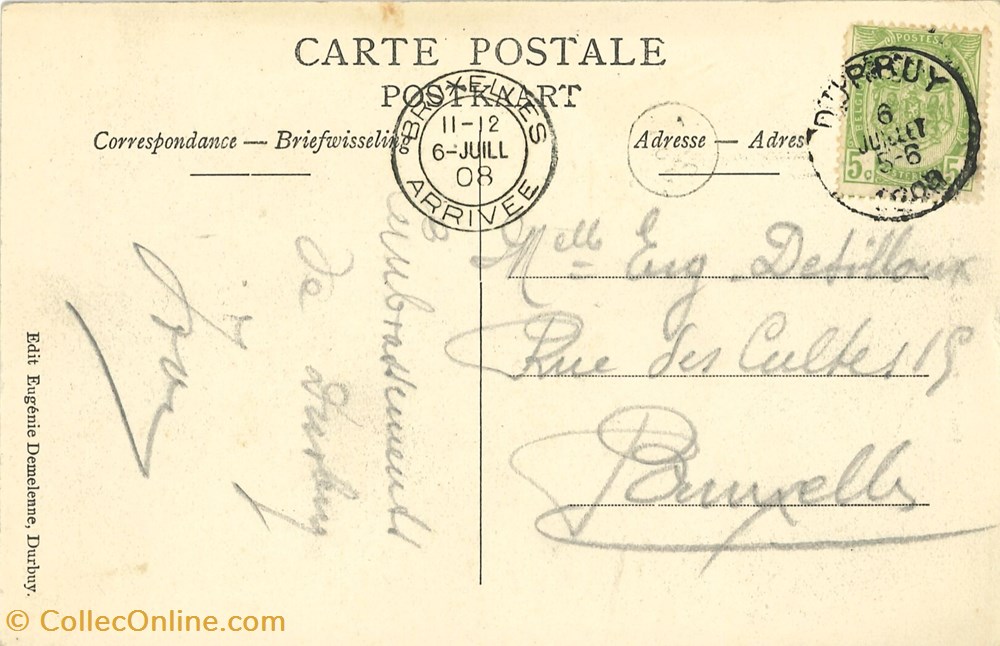 CARTE POSTALE
POSTKAART
Correspondance — Briefwisseling
Adresse — Adres
BRUXELLES
11-12
6-JUILL
08
ARRIVÉE
DURBUY
6
JUILLET
5-6
1908
POSTES
BELGIE
5 5
Embrassements
de Durbuy
Melle Eug
Rue des Cultes 15
Bruxelles
Edit Eugénie Demelenne, Durbuy.
© CollecOnline.com